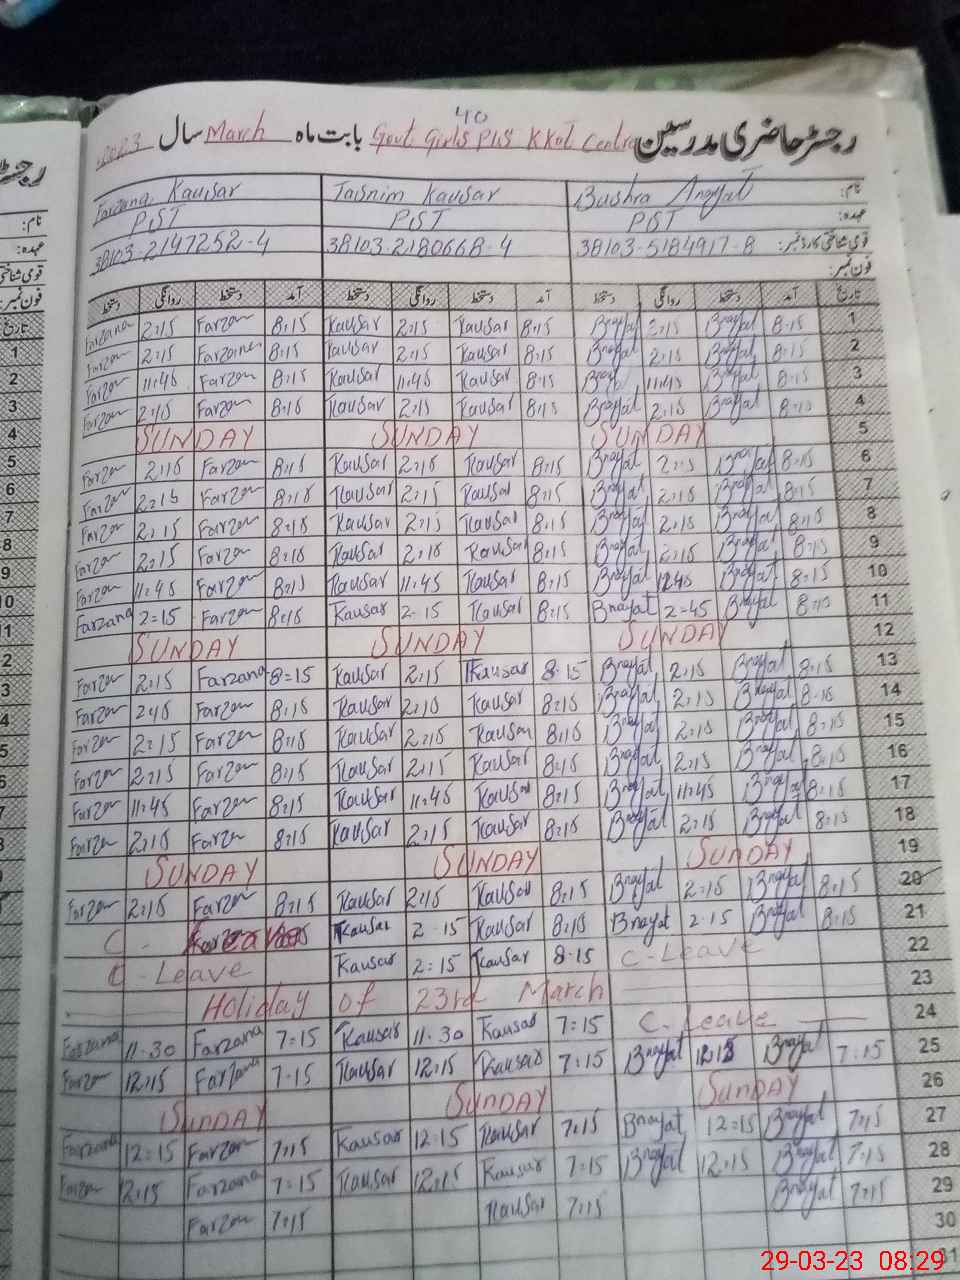 40
رجسٹر حاضری مدرسین Govt Girls P/S K Kot Centre بابت ماہ March سال 2023
نام: Bushra Anayat Tasnim Kausar Farzana Kausar
عہدہ: PST PST PST
قومی شناختی کارڈ نمبر: 38103-5184917-8 38103-2180668-4 38103-2147252-4
فون نمبر:
تاریخ آمد دستخط روانگی دستخط آمد دستخط روانگی دستخط آمد دستخط روانگی دستخط
Farzana 2:15 Farzan 8:15 Kausar 2:15 Kausar 8:15 Bnayat 2:15 Bnayat 8:15 1
Farzan 2:15 8:15 Kausar 2:15 Kausar 8:15 Bnayat 2:15 Bnayat 8:15 2
Farzan 11:45 Farzan 8:15 Kausar 11:45 Kausar 8:15 Bnayat 11:45 Bnayat 8:15 3
Farzan 2:15 Farzan 8:15 Kausar 2:15 Kausar 8:15 Bnayat 2:15 Bnayat 8:15 4
SUNDAY SUNDAY SUNDAY 5
Farzan 2:15 Farzan 8:15 Kausar 2:15 Kausar 8:15 Bnayat 2:15 Bnayat 8:15 6
Farzan 2:15 Farzan 8:15 Kausar 2:15 Kausar 8:15 Bnayat 2:15 Bnayat 8:15 7
Farzan 2:15 Farzan 8:15 Kausar 2:15 Kausar 8:15 Bnayat 2:15 Bnayat 8:15 8
Farzan 2:15 Farzan 8:15 Kausar 2:15 Kausar 8:15 Bnayat 2:15 Bnayat 8:15 9
Farzan 11:45 Farzan 8:15 Kausar 11:45 Kausar 8:15 Bnayat Bnayat 8:15 10
Farzana 2=15 Farzan 8:15 Kausar 2-15 Kausar 8:15 Bnayat 2=45 Bnayat 8:15 11
SUNDAY SUNDAY SUNDAY 12
Farzan 2:15 Farzana 8=15 Kausar 2:15 Kausar 8:15 Bnayat 2:15 Bnayat 8:15 13
Farzan 2:15 Farzan 8:15 Kausar 2:15 Kausar 8:15 Bnayat 2:15 Bnayat 8:15 14
Farzan 2:15 Farzan 8:15 Kausar 2:15 Kausar 8:15 Bnayat 2:15 Bnayat 8:15 15
Farzan 2:15 Farzan 8:15 Kausar 2:15 Kausar 8:15 Bnayat 2:15 Bnayat 8:15 16
Farzan 11:45 Farzan 8:15 Kausar 11:45 Kausar 8:15 Bnayat 11:45 Bnayat 8:15 17
Farzan 2:15 Farzan 8:15 Kausar 2:15 Kausar 8:15 Bnayat 2:15 Bnayat 8:15 18
SUNDAY SUNDAY SUNDAY 19
Farzan 2:15 Farzan 8:15 Kausar 2:15 Kausar 8:15 Bnayat 2:15 Bnayat 8:15 20
C - Kausar 2-15 Kausar 8:15 Bnayat 2-15 Bnayat 8:15 21
C - Leave Kausar 2:15 Kausar 8-15 C-Leave 22
Holiday of 23rd March 23
Farzana 11-30 Farzana 7:15 Kausar 11-30 Kausar 7:15 C. Leave 24
Farzan 12:15 Farzana 7-15 Kausar 12:15 Kausar 7:15 Bnayat 12:15 Bnayat 7:15 25
SUNDAY SUNDAY SUNDAY 26
Farzana 12=15 Farzan 7:15 Kausar 12:15 Kausar 7:15 Bnayat 12=15 Bnayat 7:15 27
Farzan 12:15 Farzana 7=15 Kausar 12:15 Kausar 7:15 Bnayat 12:15 Bnayat 7:15 28
Farzan 7:15 Kausar 7:15 Bnayat 7:15 29
30
31
29-03-23 08:29